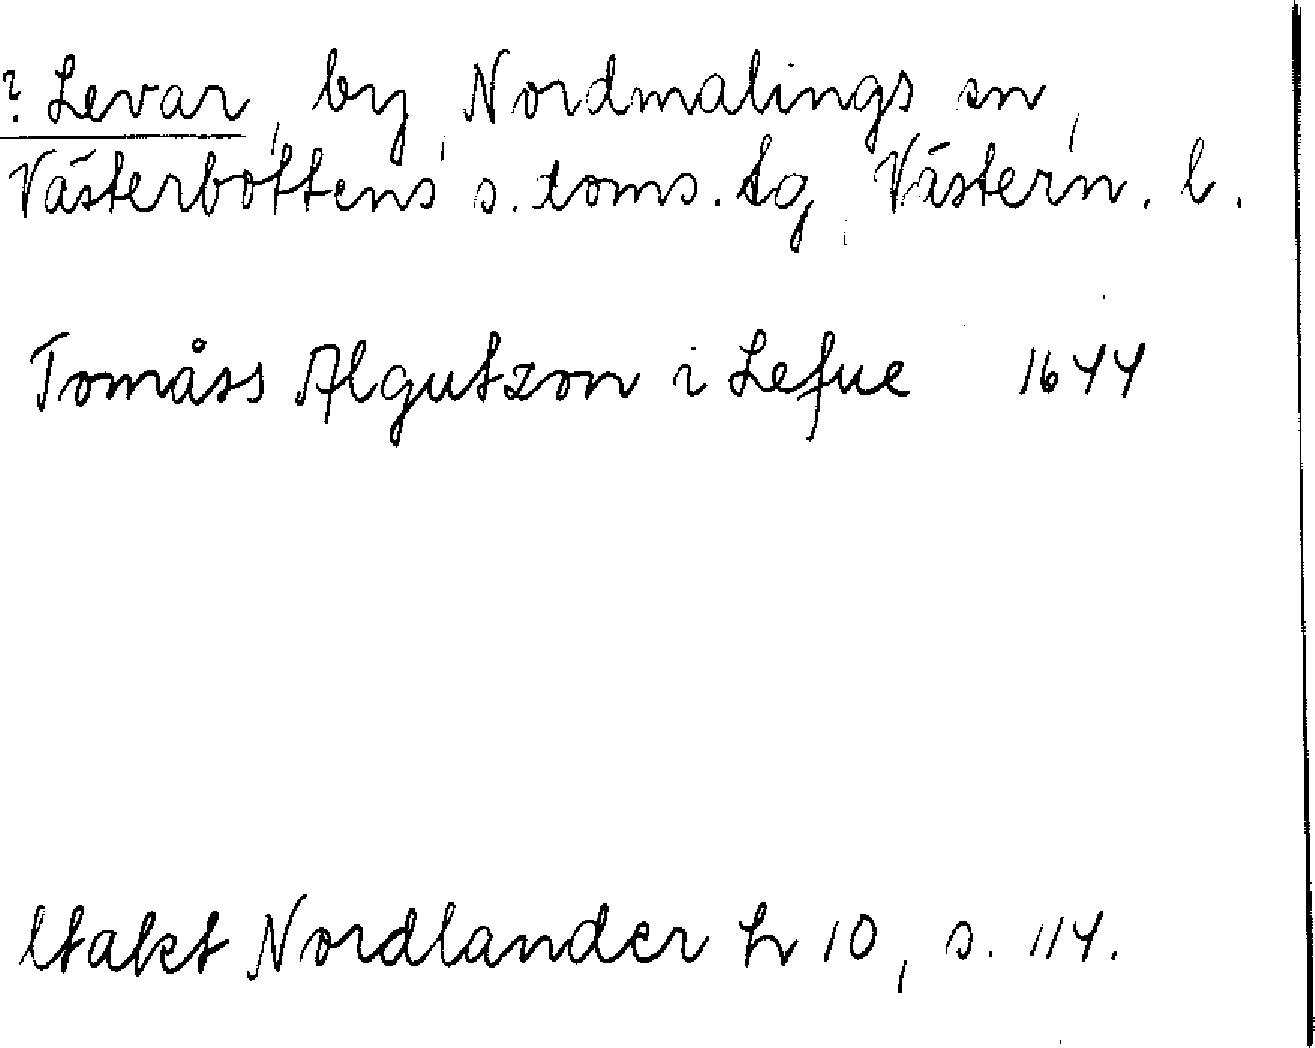 ? Levar, by, Nordmalings sn,
Västerbottens s. doms. tg, Västern. l.
Tomåss Algutzon i Lefue 1644
Utakt Nordlander h 10, s. 114.